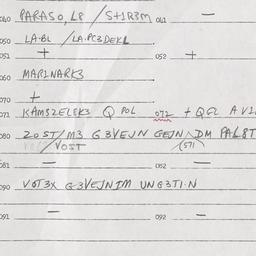 040 PARASO, L8 / S+1R3M 041 —
050 LA·BL / LA·PC3DEKL
051 + 052 +
060 MAR1NARK3
070 +
071 KAMSZELEK3 Q POL 072 + QCL A V1
080 ZOST/M3 G3VEJN GEJN DM PAL8T
/VOST (57)
081 — 082 —
090 VOT3X G3VEJNIM UNG3TI·N
091 — 092 —